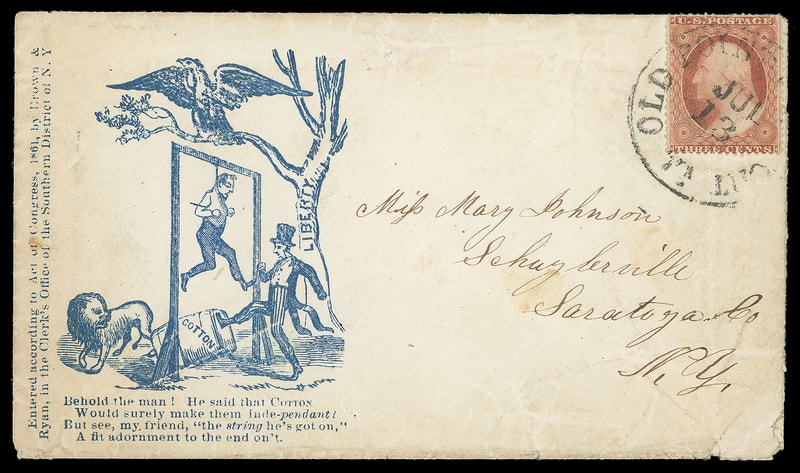 Entered according to Act of Congress, 1861, by Brown &
Ryan, in the Clerk's Office of the Southern District of N. Y
LIBERTY
COTTON
Behold the man! He said that COTTON
Would surely make them inde-pendant!
But see, my friend, "the string he's got on,"
A fit adornment to the end on't.
U.S. POSTAGE
THREE CENTS
OLD POINT
JUL
13
VA
Miss Mary Johnson
Schuylerville
Saratoga Co
N.Y.